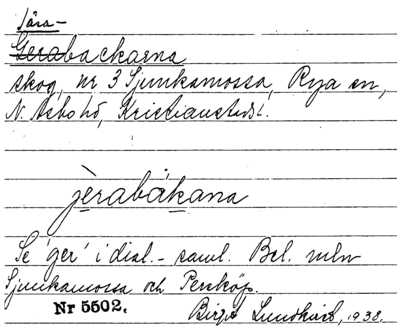 Jära-
Gerabackarna
skog, nr 3 Sjunkamossa, Rya sn,
N. Åsbo hd, Kristianstads l.
jèrabákana
Se 'ger' i dial. - saml. Bel. mln
Sjunkamossa och Perstorp.
Nr 5502.
Birgit Lundkvist, 1938.